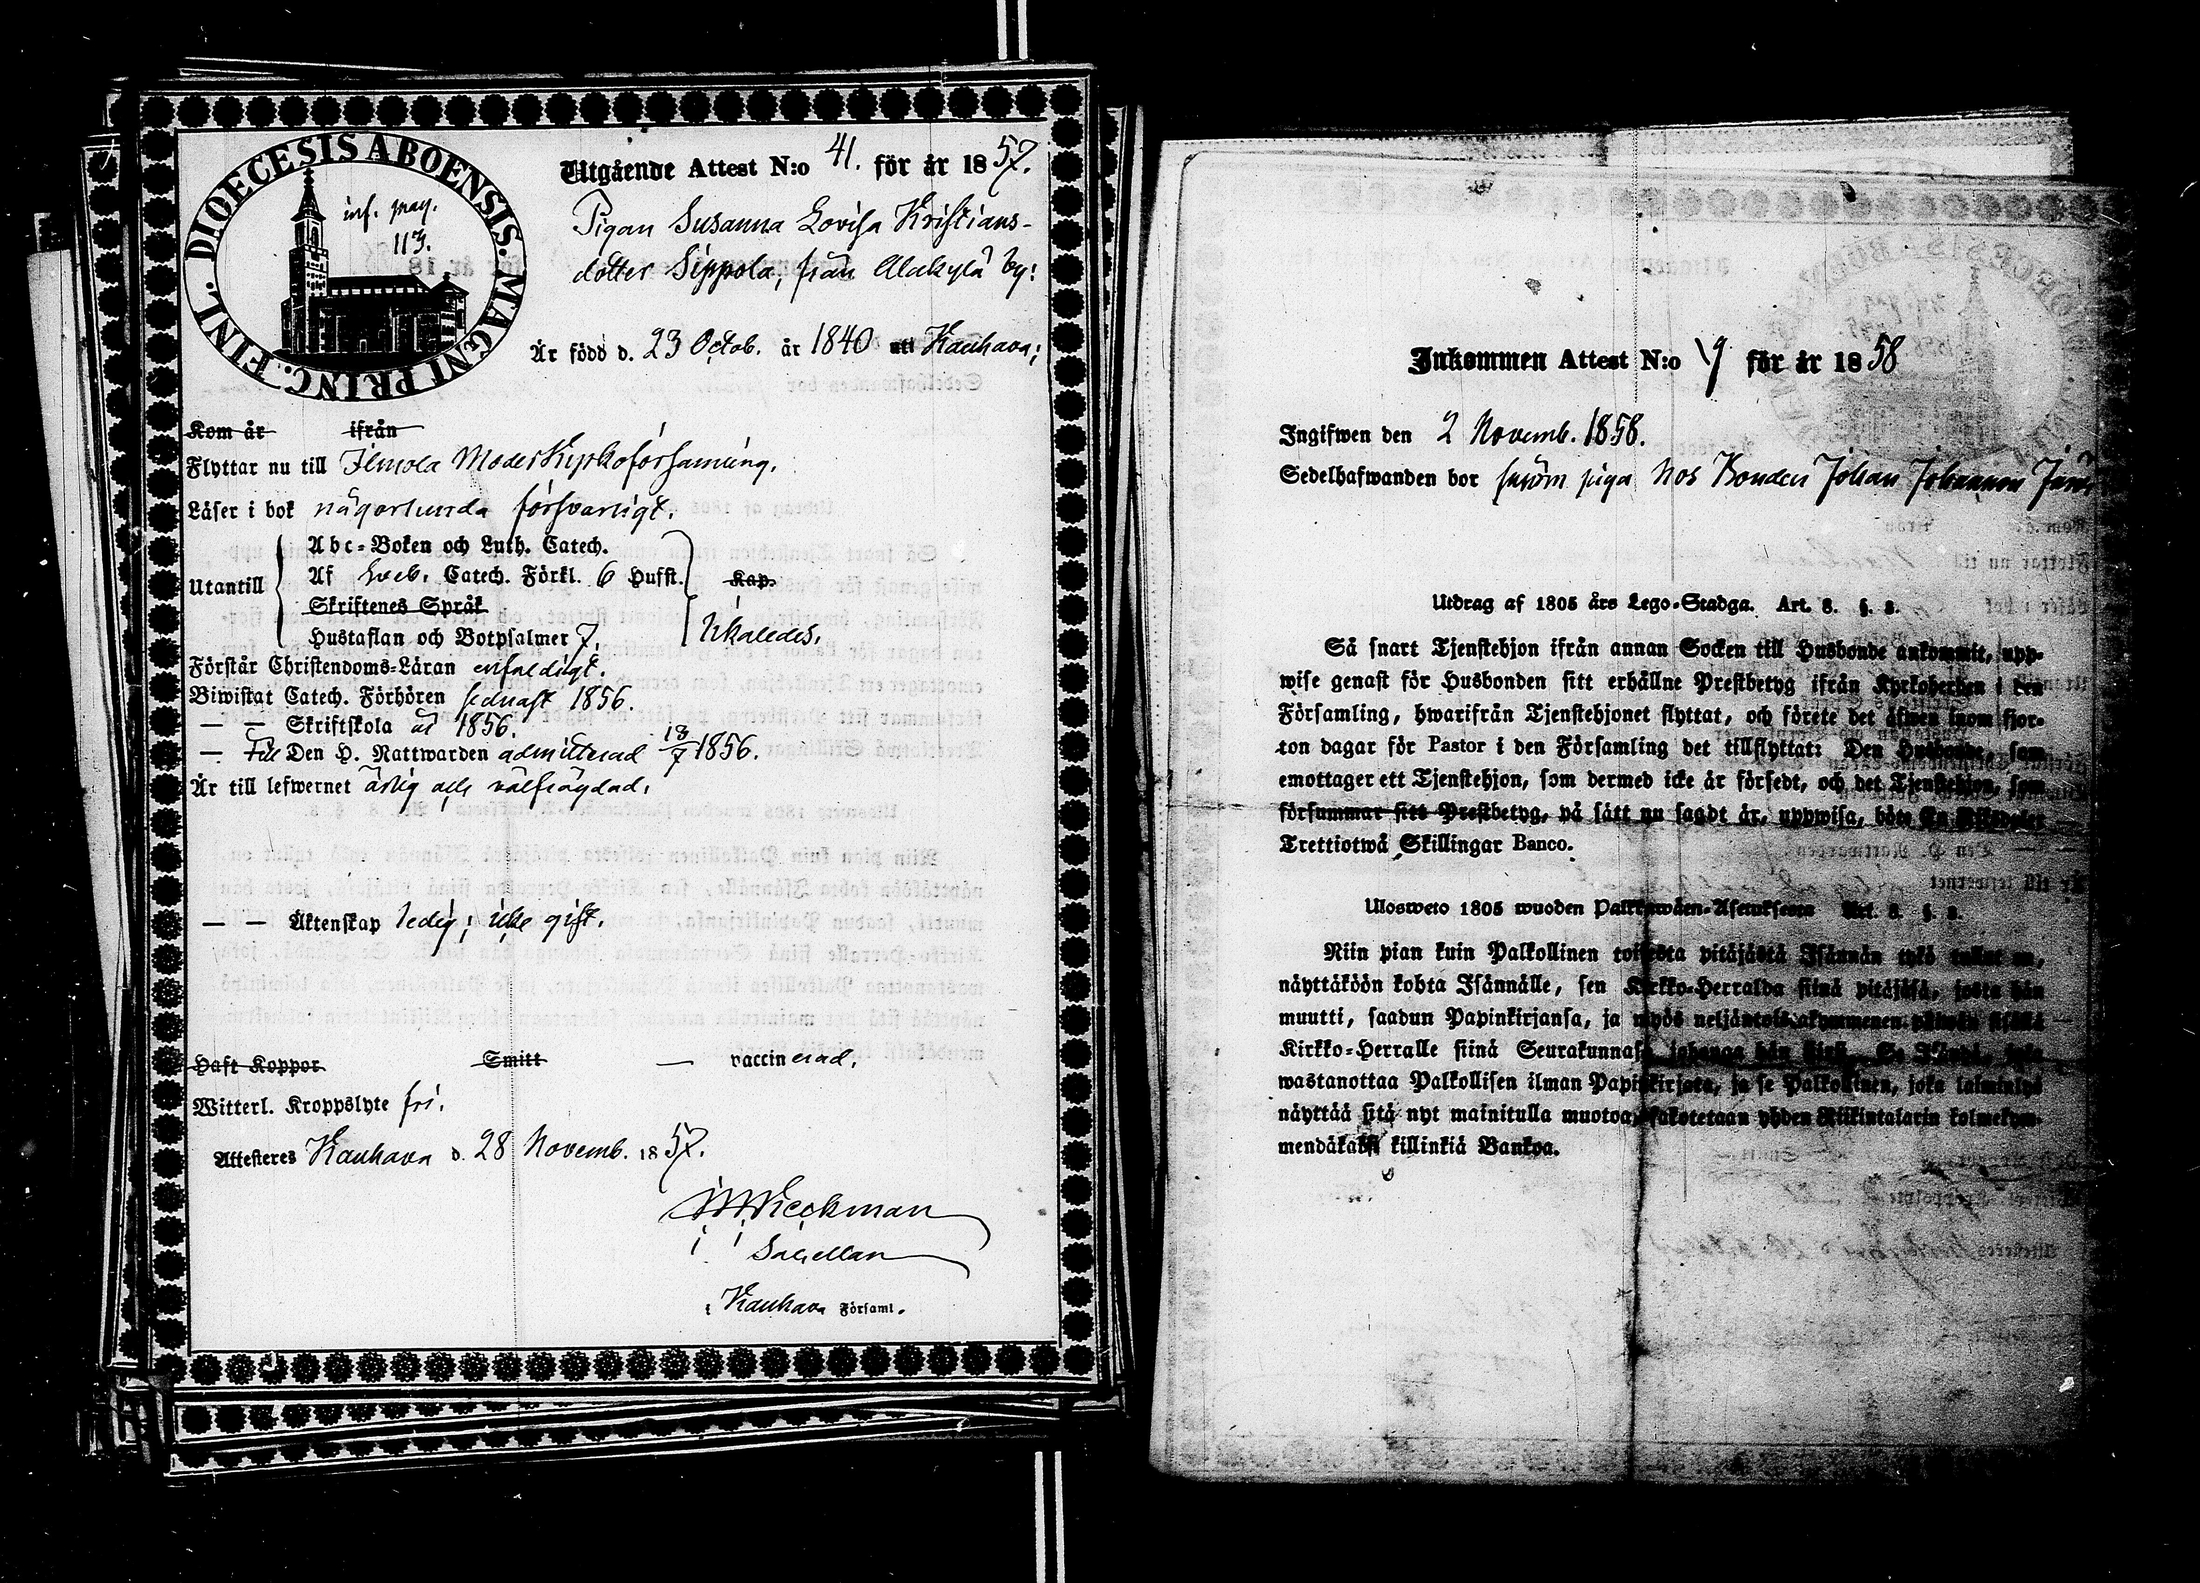 DIOECESIS ABOENSIS. MAGNI PRINC. FINL.
inf. pag.
113.
Utgående Attest N:o 41. för år 1857.
Pigan Susanna Lovisa Kristians-
dotter Sippola, från Alakylä by:
Är född d. 23 Octob. år 1840 uti Kauhava;
Kom år ifrån
Flyttar nu till Ilmola Moderkyrkoförsamling.
Läser i bok någorlunda försvarligt.
Utantill
Abc-Boken och Luth. Catech.
Af Sveb. Catech. Förkl. 6 Hufst. Kap.
Skriftenes Språk
Hustaflan och Botpsalmer 7.
Förstår Christendoms-Läran enfaldigt.
Biwistat Catech. Förhören sednast 1856.
— — Skriftskola år 1856.
— Till Den H. Nattwarden admitterad 18/7 1856.
Är till lefwernet ärlig och välfrägdad.
— — Äktenskap ledig; icke gift.
Haft Koppor Smitt — vaccinerad.
Witterl. Kroppslyte fri.
Attesteres Kauhava d. 28 Novemb. 1857.
Wieckman
i Kauhava Församl.
Inkommen Attest N:o 19 för år 1858
Ingifwen den 2 Novemb. 1858.
Sedelhafwanden bor såsom piga hos Bonden Johan Johansson
Utdrag af 1805 års Lego-Stadga. Art. 8. §. 8.
Så snart Tjenstehjon ifrån annan Socken till Husbonde ankommit, upp-
wise genast för Husbonden sitt erhållne Prestbetyg ifrån Kyrkoherden i den
Församling, hwarifrån Tjenstehjonet flyttat, och förete det äfwen inom fjor-
ton dagar för Pastor i den Församling det tillflyttat: Den Husbonde, som
emottager ett Tjenstehjon, som dermed icke är försedt, och det Tjenstehjon, som
försummar sitt Prestbetyg, på sätt nu sagdt är, uppwisa, böte En Riksdaler
Trettiotwå Skillingar Banco.
Ulosweto 1805 wuoden Palkkawäen-Asetuksesta Art. 8. §. 8.
Niin pian kuin Palkollinen toisesta pitäjästä Isännän tykö tullut on,
näyttäköön kohta Isännälle, sen Kirkko-Herralda siinä pitäjäsä, josta hän
muutti, saadun Papinkirjansa, ja myös neljäntoistakymmenen päiwän sisällä
Kirkko-Herralle siinä Seurakunnasa johonga hän siirsi. Se Isändä, joka
wastanottaa Palkollisen ilman Papinkirjata, ja se Palkollinen, joka laiminlyö
näyttää sitä nyt mainitulla muotoa, sakotetaan yhden Riikintalarin kolmekym-
mendäkaksi killinkiä Bankoa.